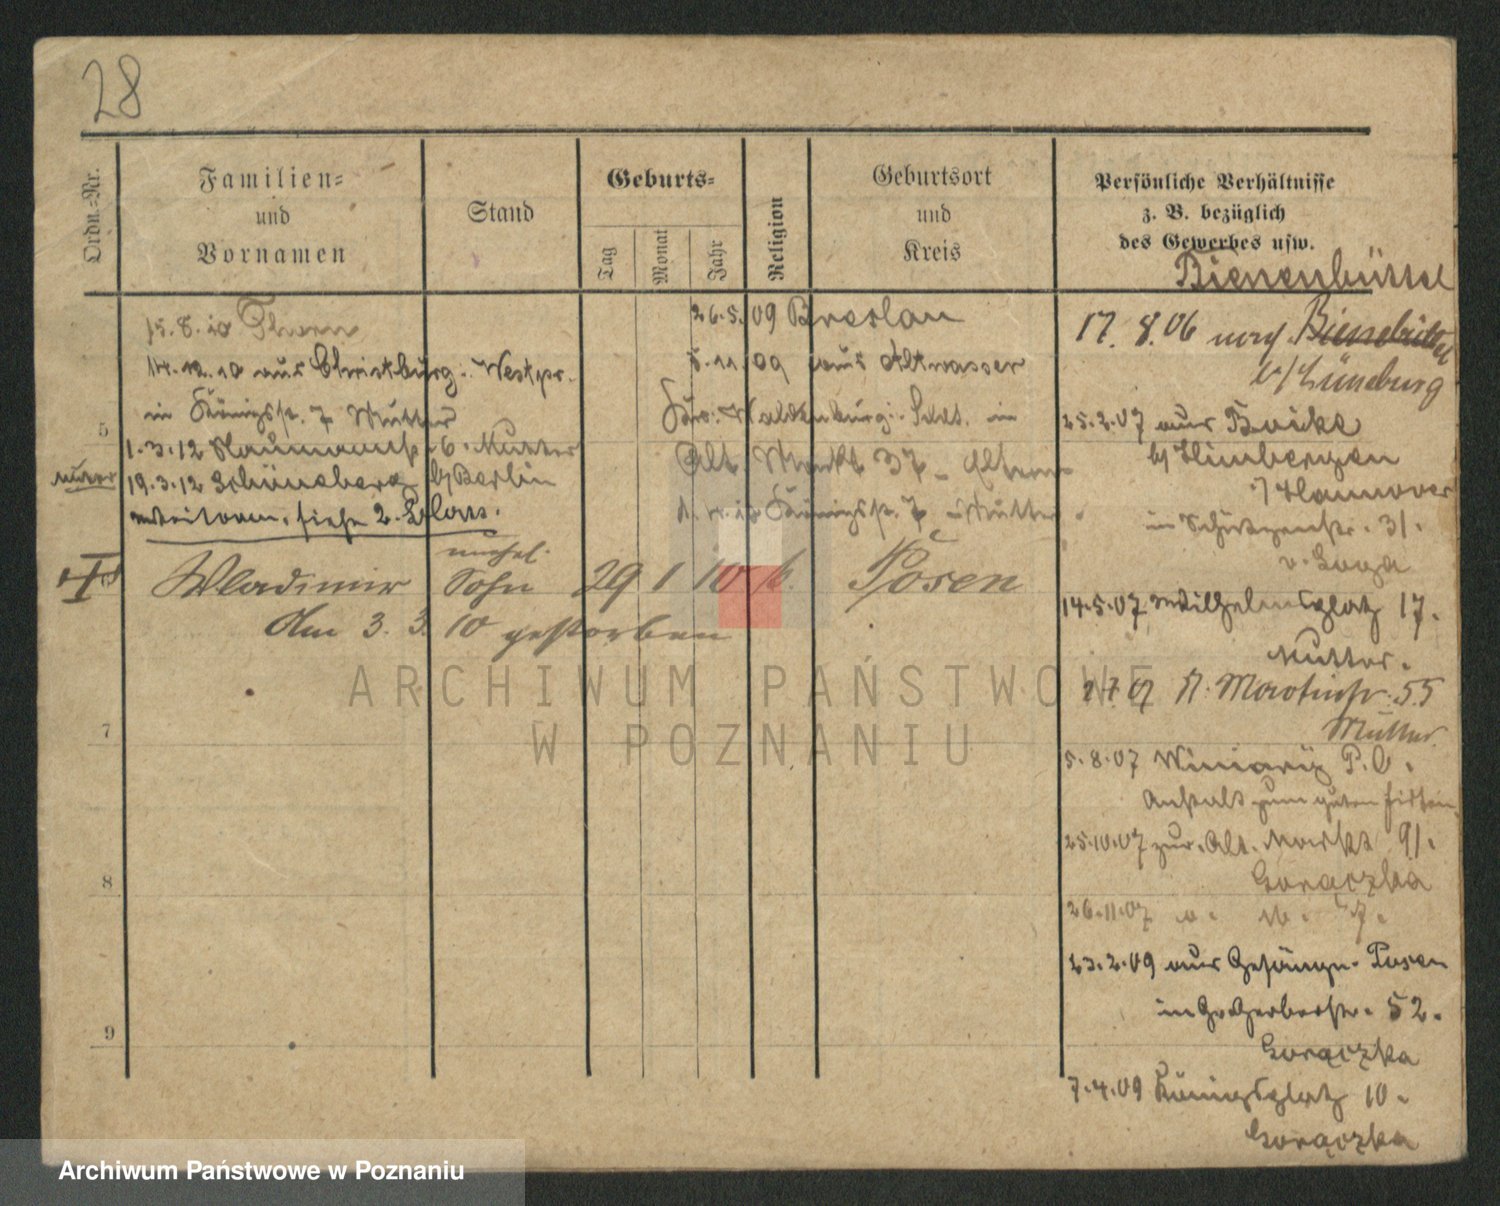 28
Ordn.-Nr.
Familien-
und
Vornamen
Stand
Geburts-
Tag
Monat
Jahr
Religion
Geburtsort
und
Kreis
Persönliche Verhältnisse
z. B. bezüglich
des Gewerbes usw.
Bienenbüttel
15.8.10 Thorn
14.12.10 aus Christburg. Westpr.
in Königsstr. 7 Mutter
5
1.3.12 Naumannstr. 6. Mutter
19.3.12 Schöneberg b/Berlin
siehe 2. Blatt.
26.5.09 Breslau
5.11.09 aus Altwasser
Krs. Waldenburg. Schles. in
Alt. Markt 37 Eltern
Königsstr. 7 Mutter
unehel.
Wladimir Sohn 29 1 10 k. Posen
Am 3. 3. 10 gestorben
7
8
9
17. 8. 06 nach Bienenbüttel
b/Lüneburg
25.2.07 aus
b/Himbergen
i/Hannover
in Schützenstr. 31.
14.5.07 Wilhelmsplatz 17.
Mutter.
7. 07 St. Martinstr. 55
Mutter.
5.8.07 Winiary P.O.
Anstalt zum guten Hirten
25.10.07 zur. Alt. Markt 91.
Gorączka
26.11.07
23.2.09 aus Gefängn. Posen
in Gr. Gerberstr. 52.
Gorączka
7.4.09 Königsplatz 10.
Gorączka
ARCHIWUM PAŃSTWOWE
W POZNANIU
Archiwum Państwowe w Poznaniu